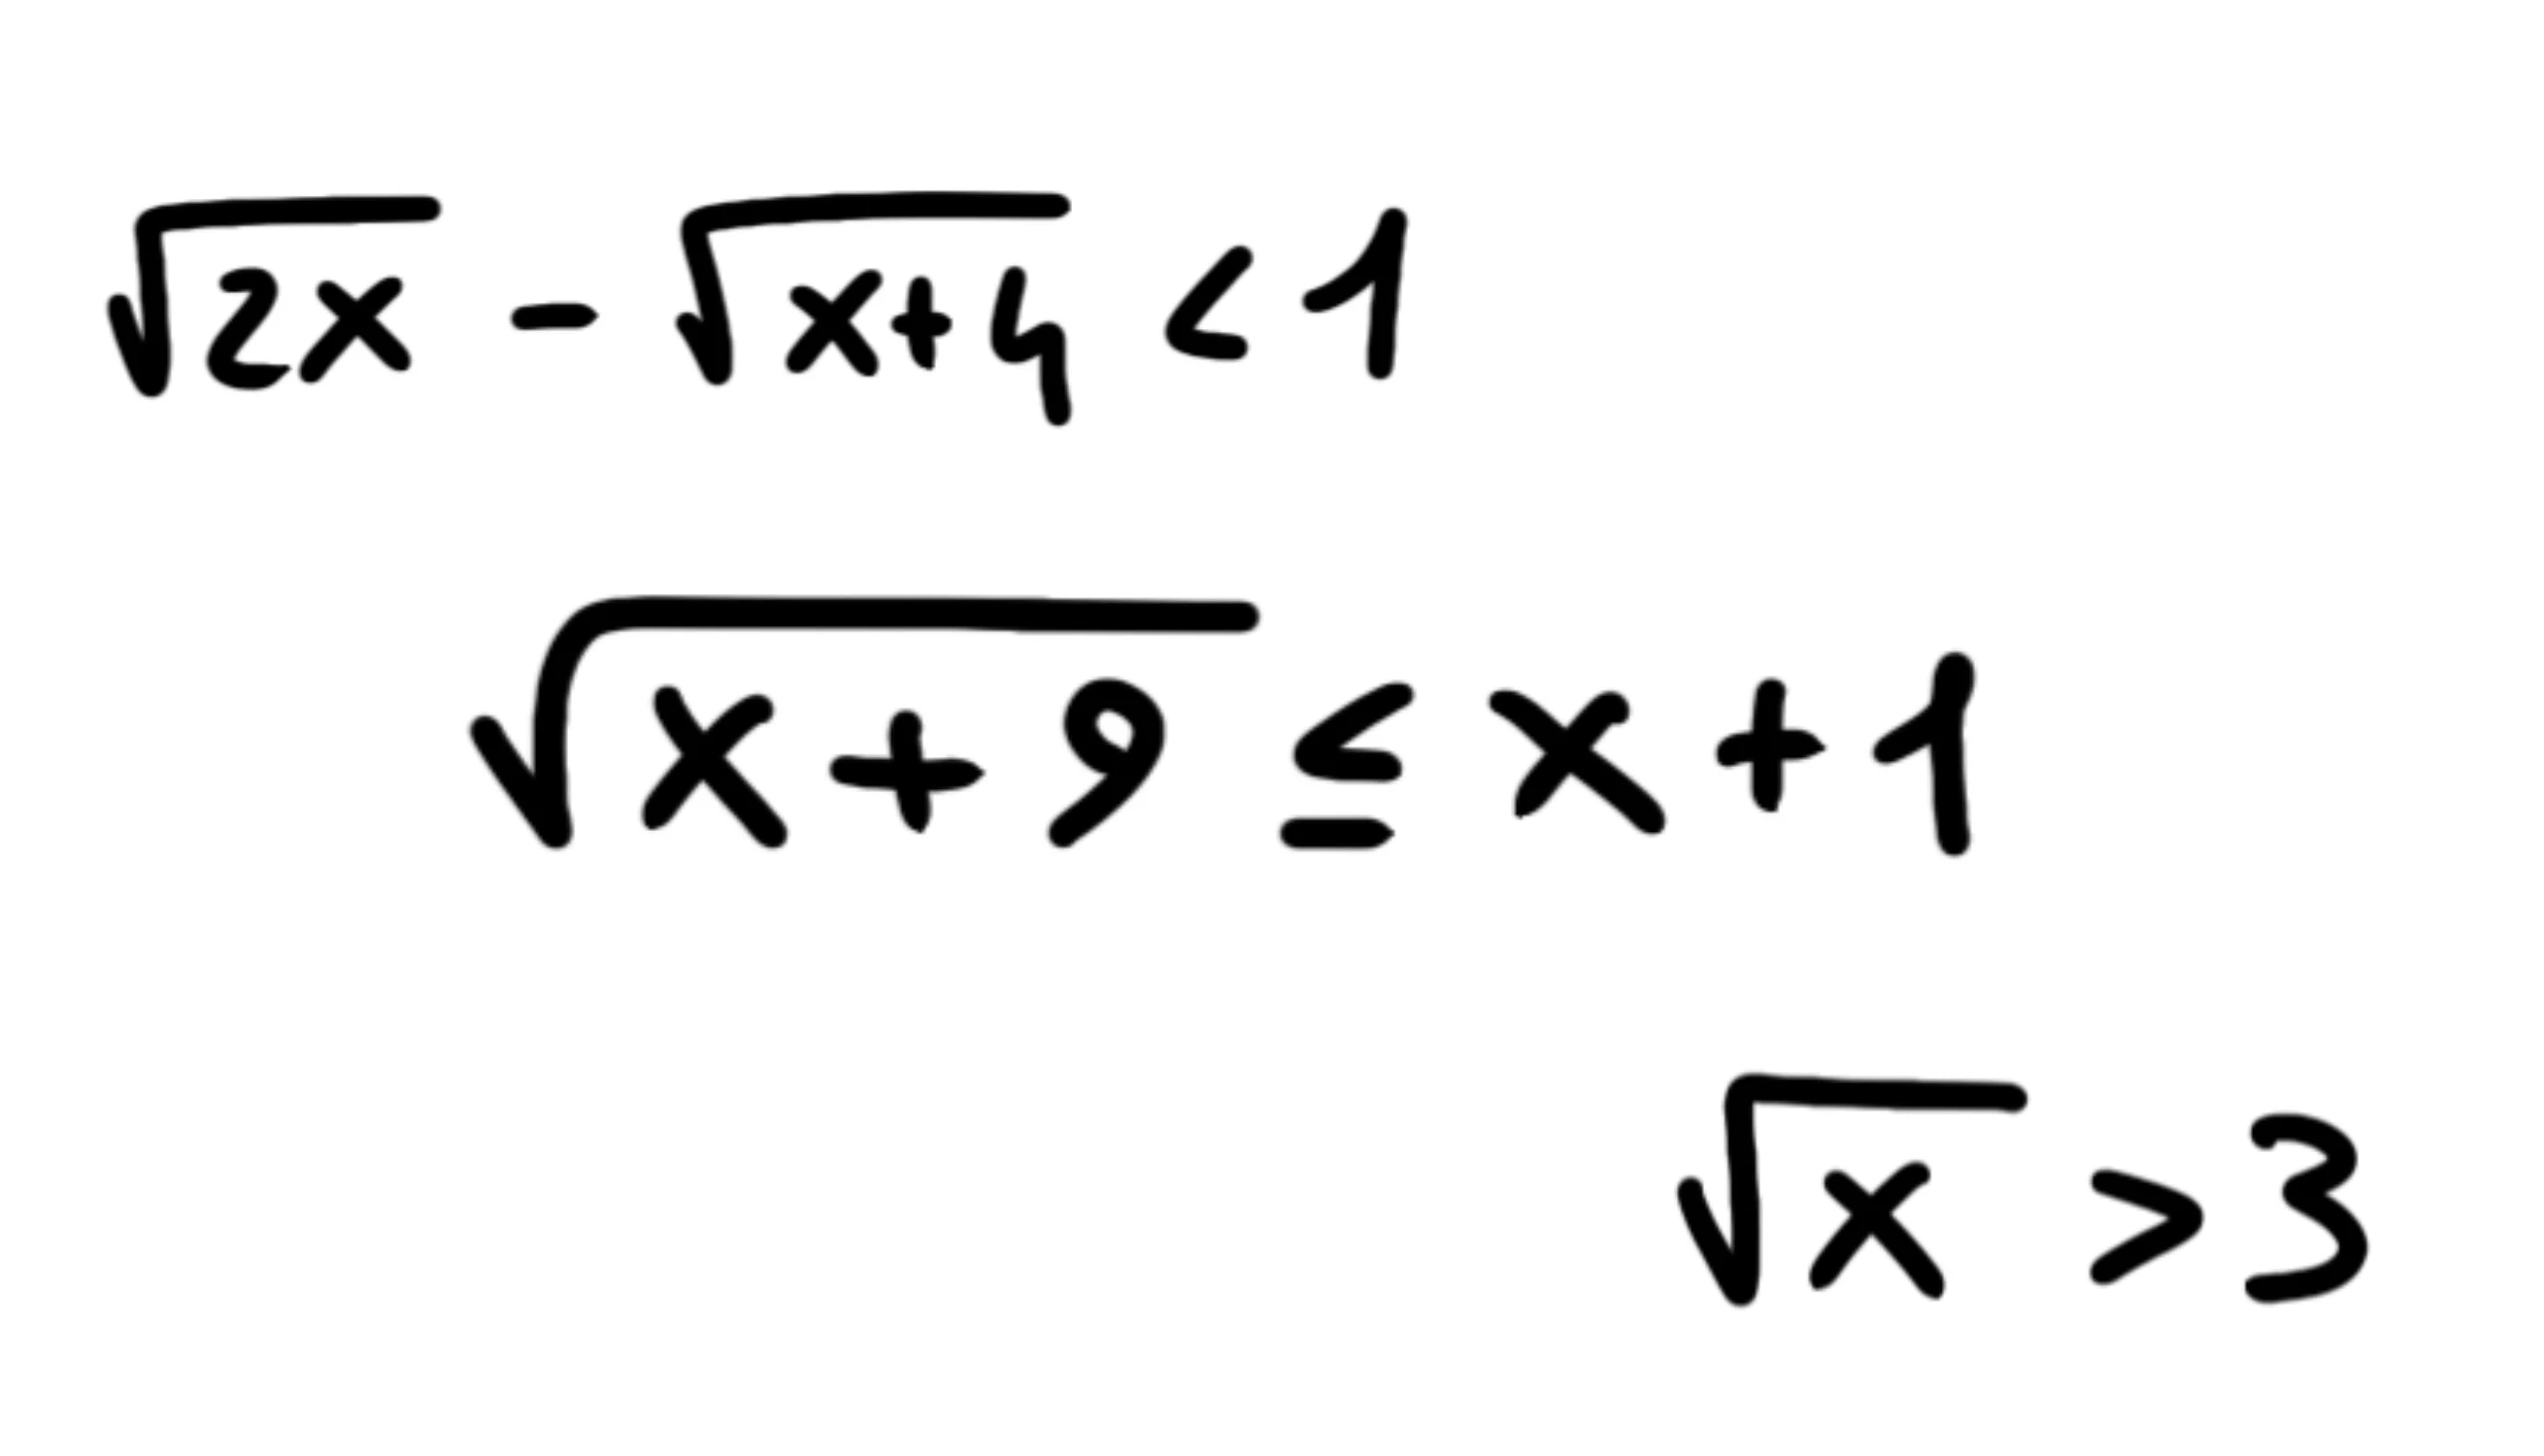 √2x - √x+4 < 1
√x + 9 ≤ x + 1
√x > 3